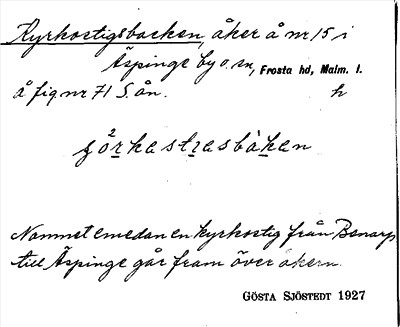 Kyrkostigsbacken, åker å nr 15 i
Äspinge by o. sn, Frosta hd, Malm. l.
å fig nr 71 S. ån. h
Namnet emedan en kyrkostig från Bonarp
till Äspinge går fram över åkern.
GÖSTA SJÖSTEDT 1927